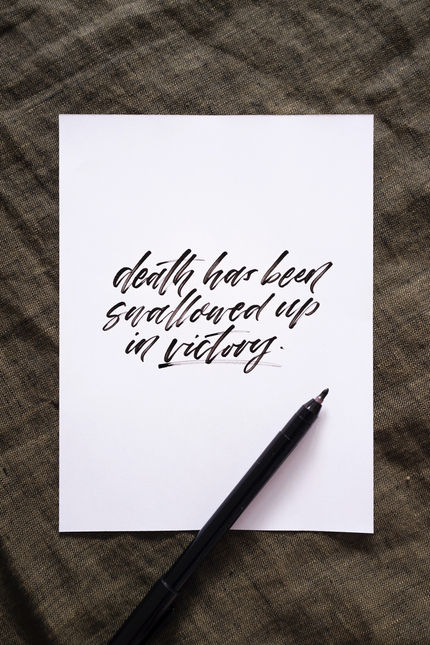 death has been
swallowed up
in victory.